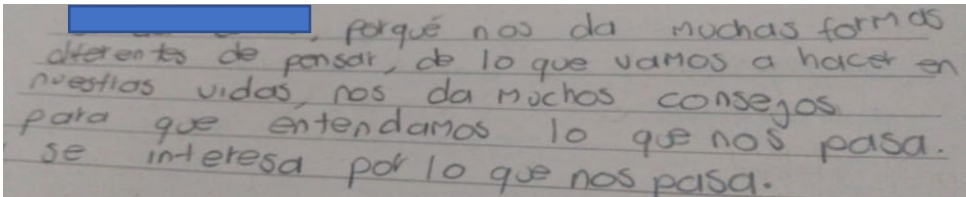 , porqué nos da muchas formas
diferentes de pensar, de lo que vamos a hacer en
nuestras vidas, nos da muchos consejos
para que entendamos lo que nos pasa.
se interesa por lo que nos pasa.